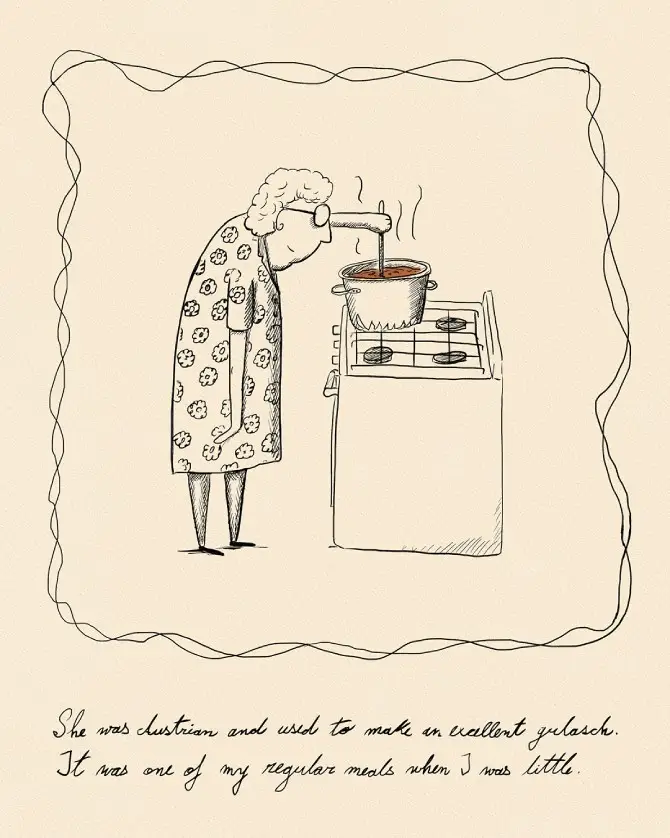 She was Austrian and used to make an excellent gulasch.
It was one of my regular meals when I was little.